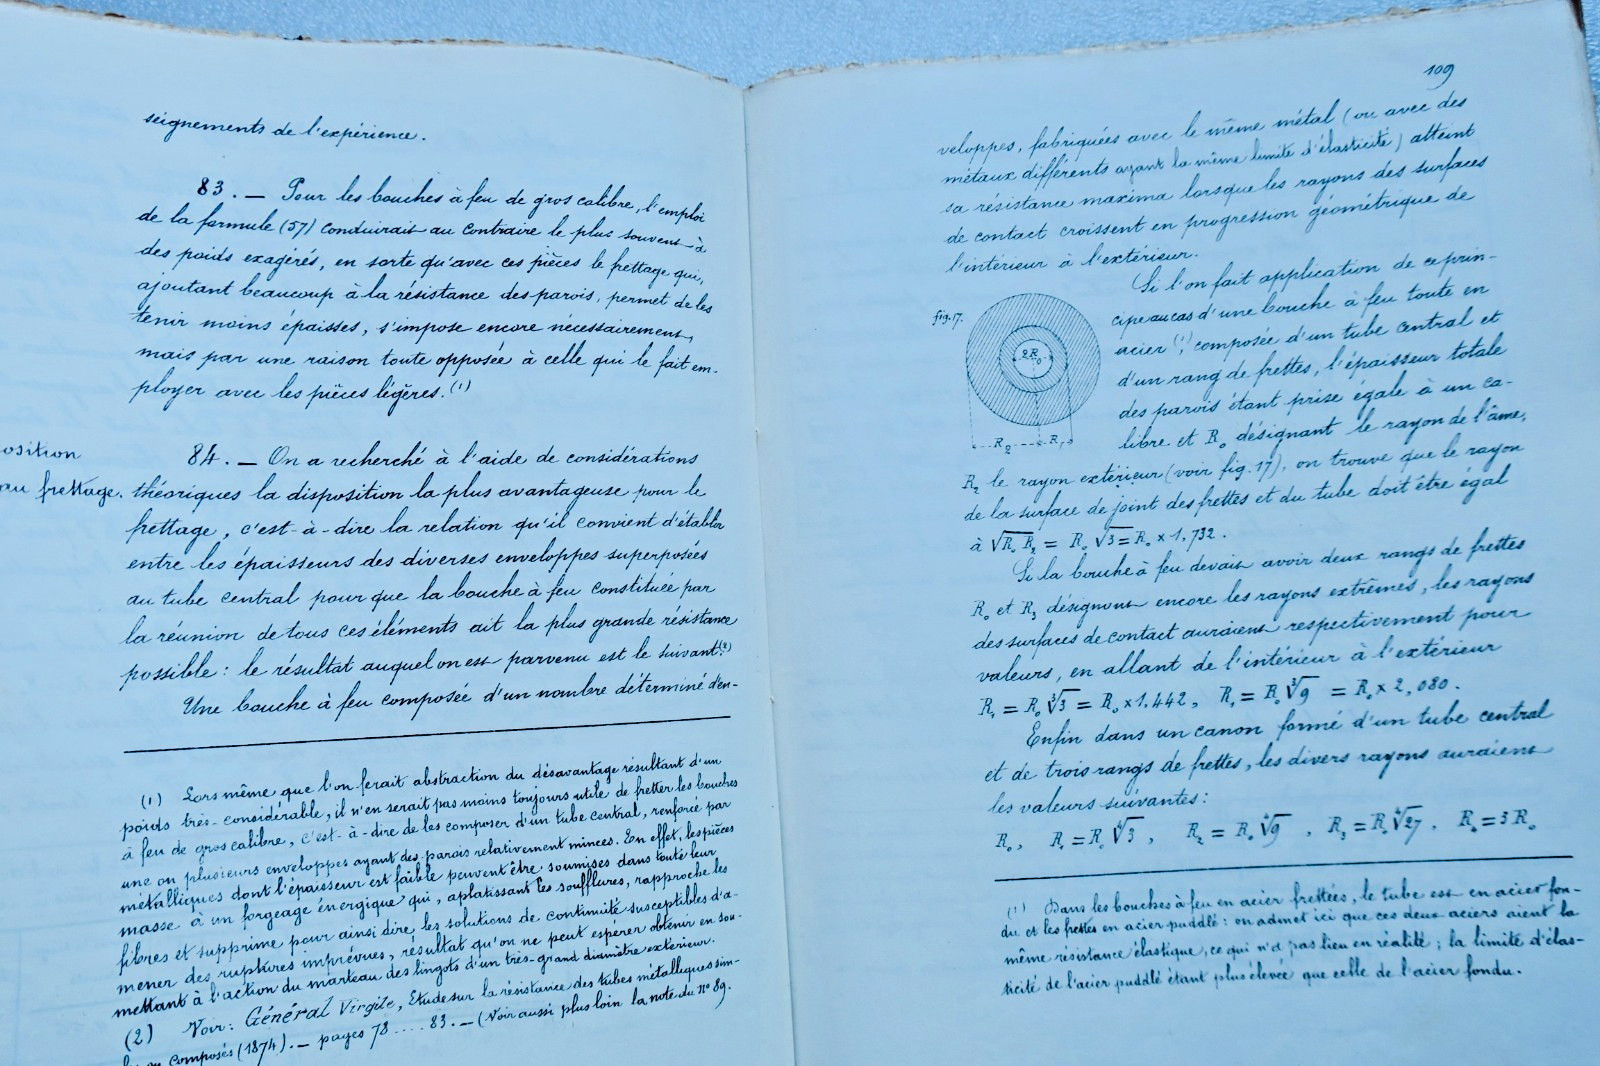 seignements de l'expérience.
83. — Pour les bouches à feu de gros calibre, l'emploi
de la formule (57) conduirait au contraire le plus souvent à
des poids exagérés, en sorte qu'avec ces pièces le frettage qui,
ajoutant beaucoup à la résistance des parois, permet de les
tenir moins épaisses, s'impose encore nécessairement,
mais par une raison toute opposée à celle qui le fait em-
ployer avec les pièces légères. (1)
osition
au frettage.
84. — On a recherché à l'aide de considérations
théoriques la disposition la plus avantageuse pour le
frettage, c'est-à-dire la relation qu'il convient d'établir
entre les épaisseurs des diverses enveloppes superposées
au tube central pour que la bouche à feu constituée par
la réunion de tous ces éléments ait la plus grande résistance
possible : le résultat auquel on est parvenu est le suivant (2)
Une bouche à feu composée d'un nombre déterminé d'en-
(1) Lors même que l'on ferait abstraction du désavantage résultant d'un
poids très-considérable, il n'en serait pas moins toujours utile de fretter les bouches
à feu de gros calibre, c'est-à-dire de les composer d'un tube central, renforcé par
une ou plusieurs enveloppes ayant des parois relativement minces. En effet, les pièces
métalliques dont l'épaisseur est faible peuvent être soumises dans toute leur
masse à un forgeage énergique qui, aplatissant les soufflures, rapproche les
fibres et supprime pour ainsi dire les solutions de continuité susceptibles d'a-
mener des ruptures imprévues, résultat qu'on ne peut espérer obtenir en sou-
mettant à l'action du marteau des lingots d'un très-grand diamètre extérieur.
(2) Voir : Général Virgile, Etude sur la résistance des tubes métalliques sim-
ou composés (1874). — pages 78 .... 83. — (Voir aussi plus loin la note du n° 89.
109
veloppes, fabriquées avec le même métal (ou avec des
métaux différents ayant la même limite d'élasticité) atteint
sa résistance maxima lorsque les rayons des surfaces
de contact croissent en progression géométrique de
l'intérieur à l'extérieur.
Si l'on fait application de ce prin-
cipe au cas d'une bouche à feu toute en
acier (1), composée d'un tube central et
d'un rang de frettes, l'épaisseur totale
des parois étant prise égale à un ca-
libre et R₀ désignant le rayon de l'âme,
fig. 17.
2R₀
R₂ R₁
R₂ le rayon extérieur (voir fig. 17), on trouve que le rayon
de la surface de joint des frettes et du tube doit être égal
à √R₀ R₂ = R₀ √3 = R₀ × 1,732.
Si la bouche à feu devait avoir deux rangs de frettes
R₀ et R₃ désignant encore les rayons extrêmes, les rayons
des surfaces de contact auraient respectivement pour
valeurs, en allant de l'intérieur à l'extérieur
R₁ = R₀ ∛3 = R₀ × 1,442, R₂ = R₀ ∛9 = R₀ × 2,080.
Enfin dans un canon formé d'un tube central
et de trois rangs de frettes, les divers rayons auraient
les valeurs suivantes :
R₀, R₁ = R₀ ∜3, R₂ = R₀ ∜9, R₃ = R₀ ∜27, R₄ = 3 R₀
(1) Dans les bouches à feu en acier frettées, le tube est en acier fon-
du et les frettes en acier puddlé : on admet ici que ces deux aciers aient la
même résistance élastique, ce qui n'a pas lieu en réalité ; la limite d'élas-
ticité de l'acier puddlé étant plus élevée que celle de l'acier fondu.